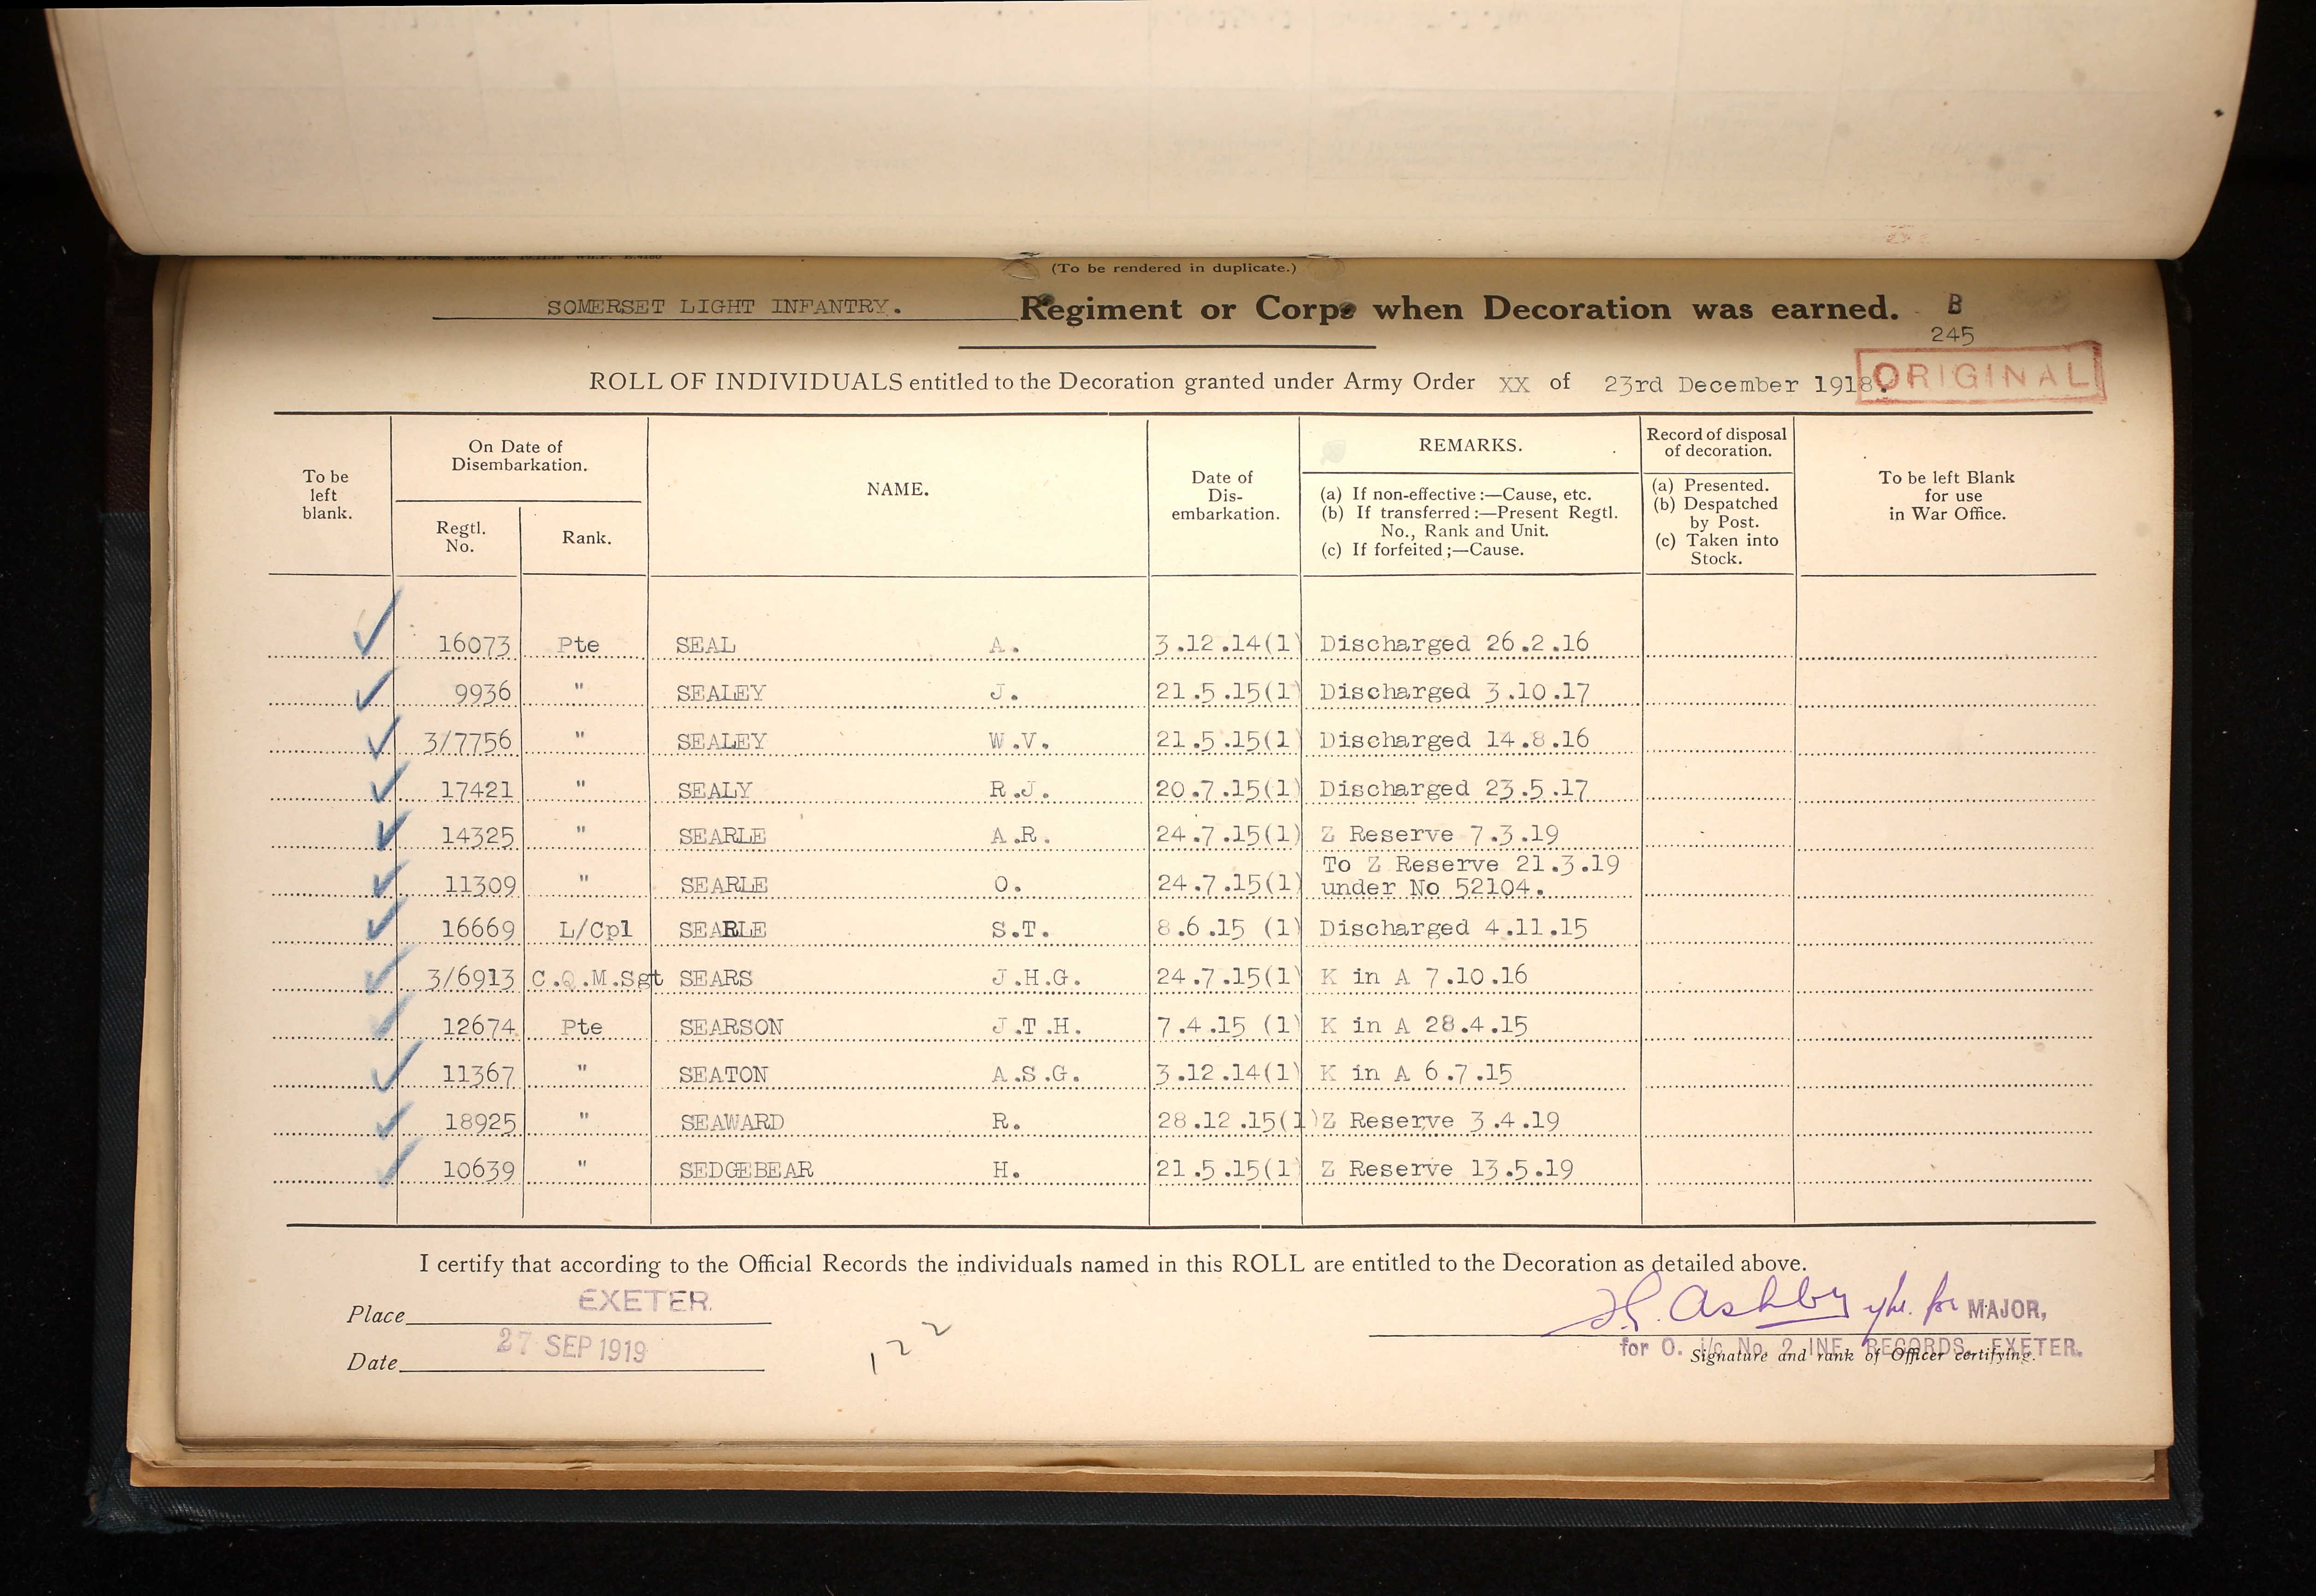 (To be rendered in duplicate.)
SOMERSET LIGHT INFANTRY. Regiment or Corps when Decoration was earned. B
245
ORIGINAL
ROLL OF INDIVIDUALS entitled to the Decoration granted under Army Order XX of 23rd December 1918.
To be left blank.
On Date of Disembarkation.
Regtl. No.
Rank.
NAME.
Date of Dis-
embarkation.
REMARKS.
(a) If non-effective:—Cause, etc.
(b) If transferred:—Present Regtl.
No., Rank and Unit.
(c) If forfeited;—Cause.
Record of disposal
of decoration.
(a) Presented.
(b) Despatched
by Post.
(c) Taken into
Stock.
To be left Blank
for use
in War Office.
16073 Pte SEAL A. 3.12.14(1) Discharged 26.2.16
9936 " SEALEY J. 21.5.15(1) Discharged 3.10.17
3/7756 " SEALEY W.V. 21.5.15(1 Discharged 14.8.16
17421 " SEALY R.J. 20.7.15(1) Discharged 23.5.17
14325 " SEARLE A.R. 24.7.15(1) Z Reserve 7.3.19
11309 " SEARLE O. 24.7.15(1) To Z Reserve 21.3.19
under No 52104.
16669 L/Cpl SEARLE S.T. 8.6.15 (1) Discharged 4.11.15
3/6913 C.Q.M.Sgt SEARS J.H.G. 24.7.15(1) K in A 7.10.16
12674 Pte SEARSON J.T.H. 7.4.15 (1) K in A 28.4.15
11367 " SEATON A.S.G. 3.12.14(1) K in A 6.7.15
18925 " SEAWARD R. 28.12.15(1) Z Reserve 3.4.19
10639 " SEDGEBEAR H. 21.5.15(1) Z Reserve 13.5.19
I certify that according to the Official Records the individuals named in this ROLL are entitled to the Decoration as detailed above.
Place EXETER.
Date 27 SEP 1919
122
Ashby for MAJOR,
for O. i/c No. 2 INF. RECORDS, EXETER.
Signature and rank of Officer certifying.